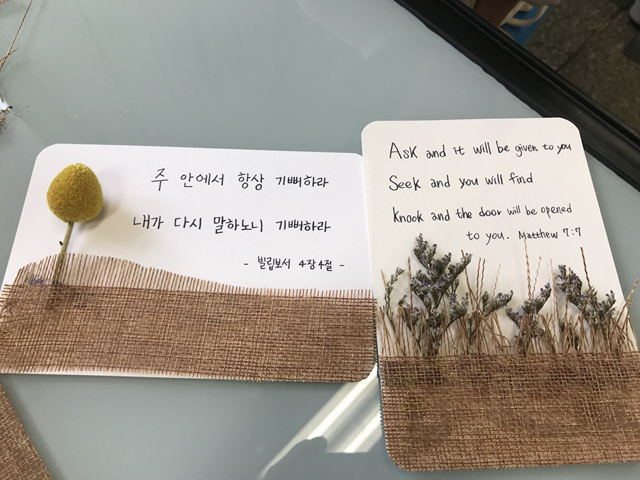 주 안에서 항상 기뻐하라
내가 다시 말하노니 기뻐하라
- 빌립보서 4장 4절 -
Ask and it will be given to you
Seek and you will find
Knock and the door will be opened
to you. Matthew 7:7